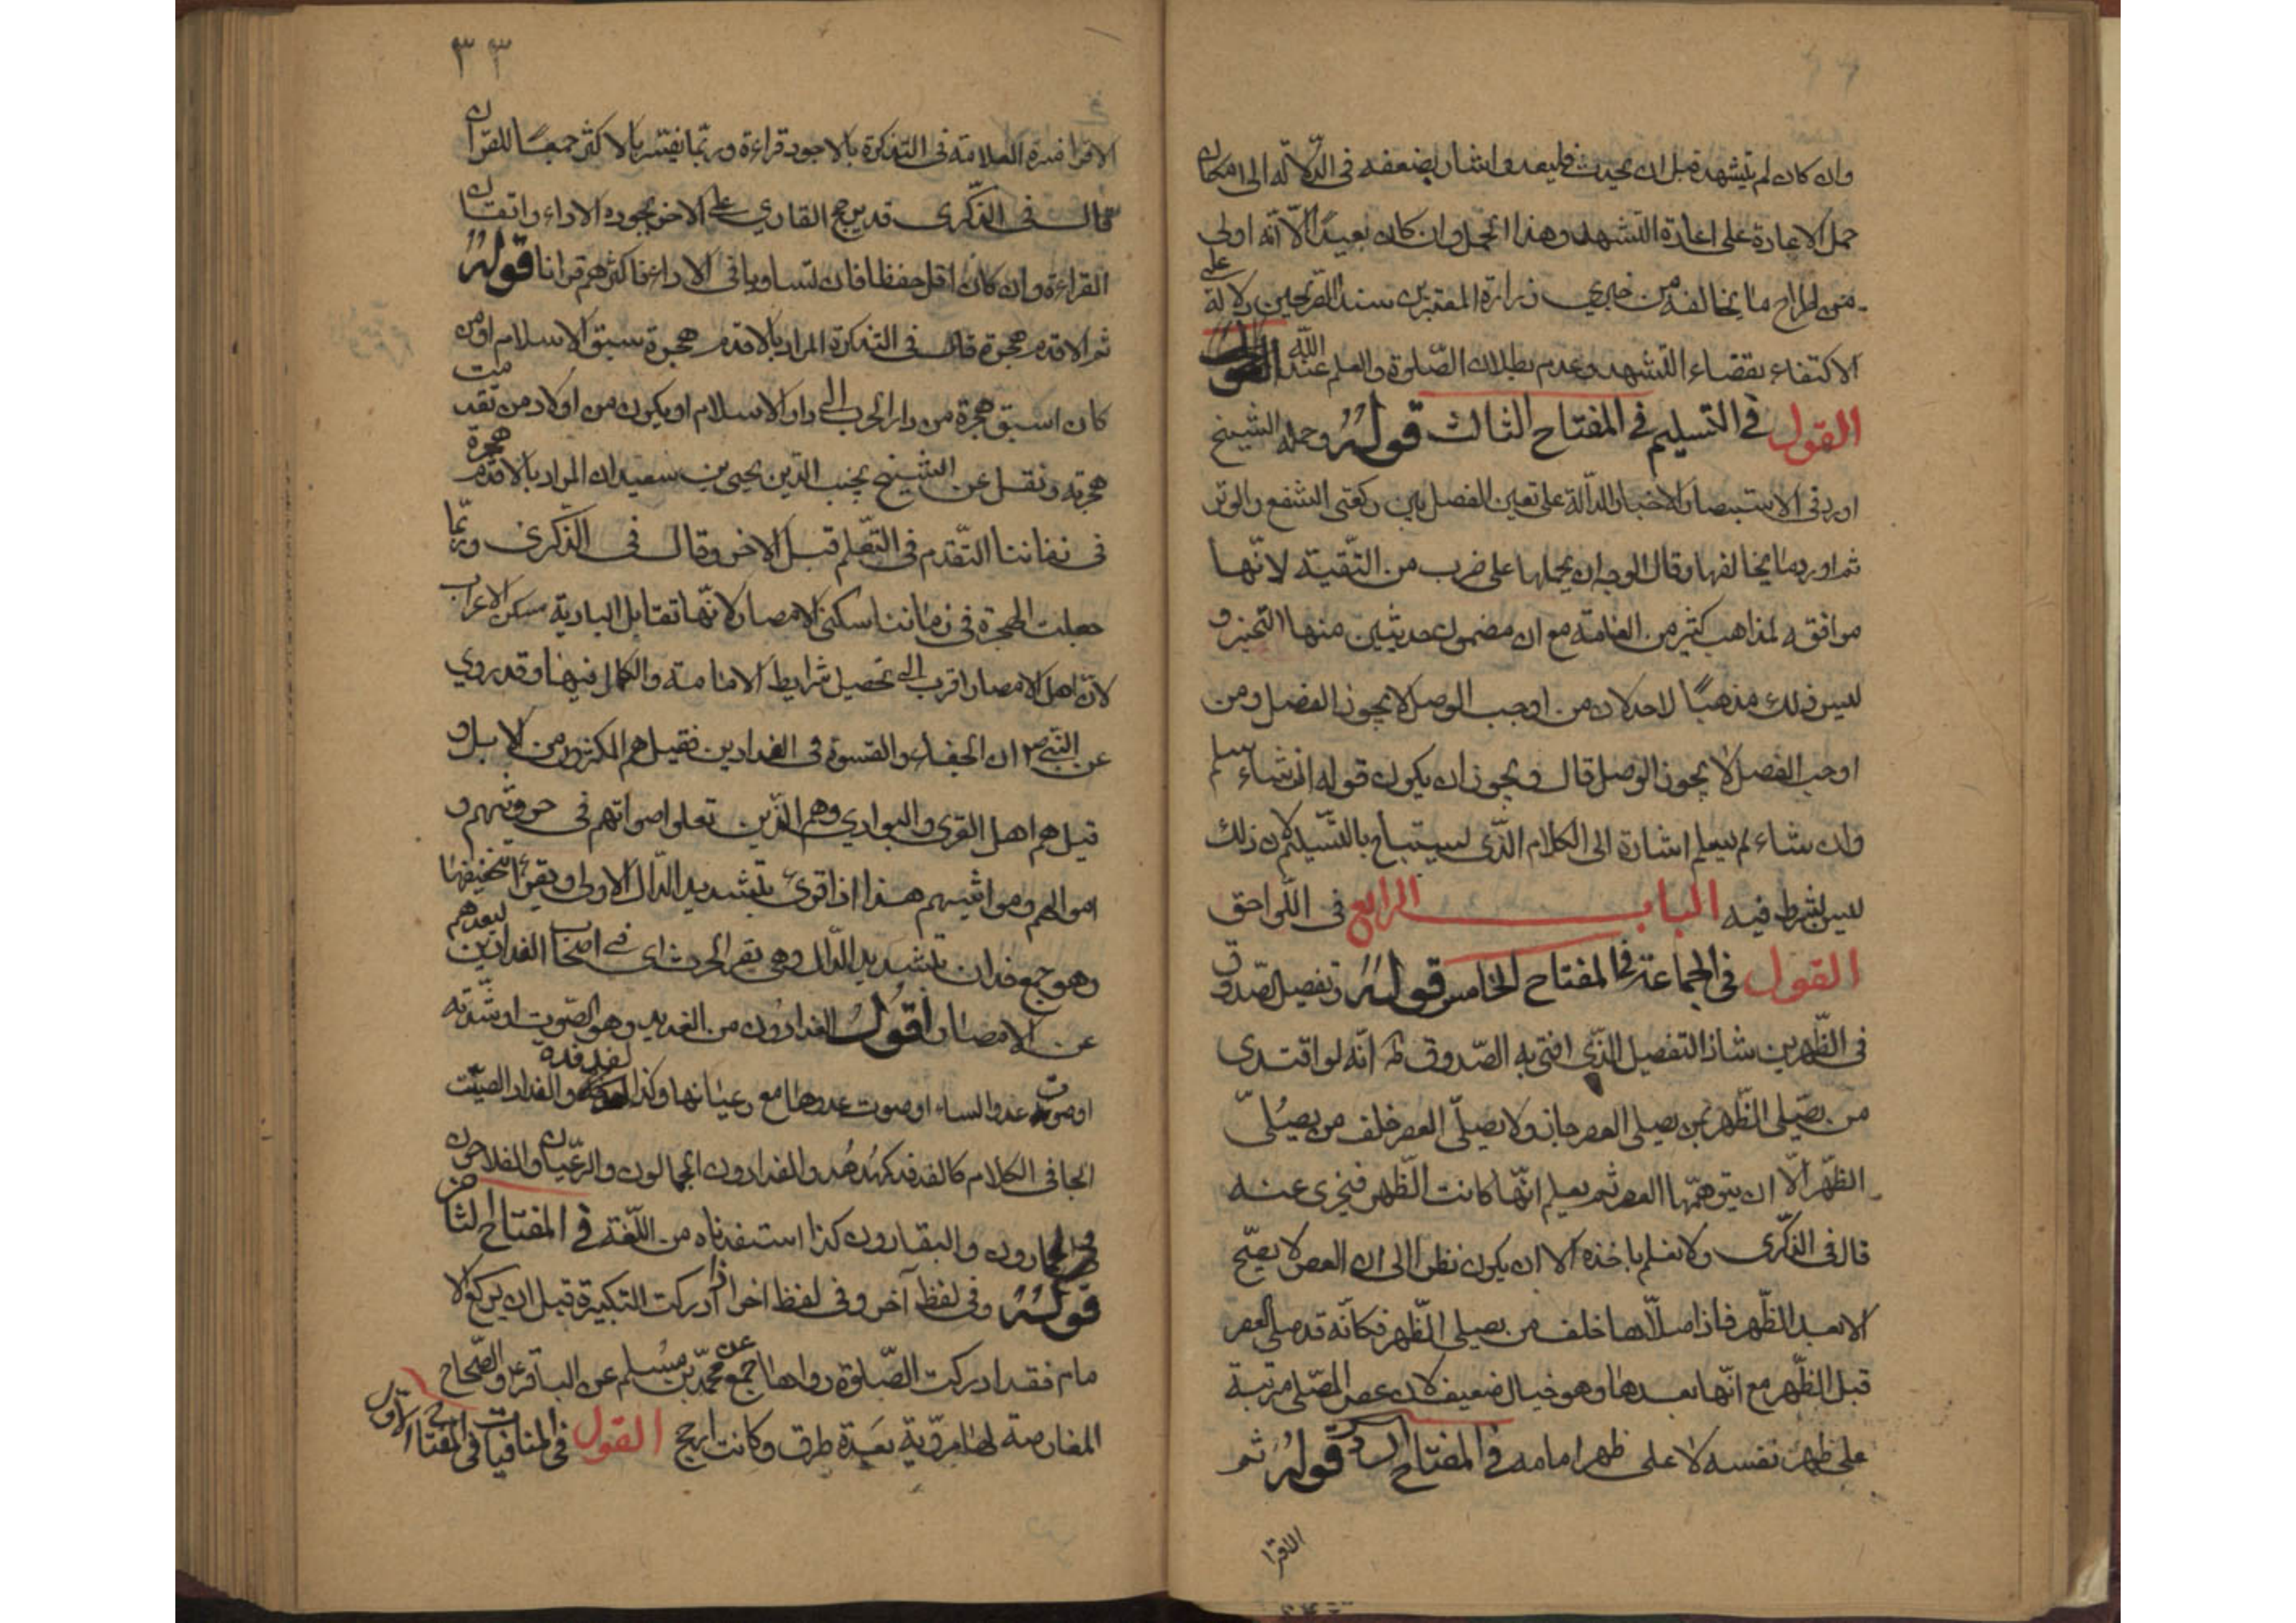 وان كان لم يتشهد قبل ان يحدث فليعد واشار بضعفه فى الدلالة الى امكان
حمل الاعادة على اعادة التشهد وهذا الحمل وان كان بعيدًا الّا انّه اولى
من اطراح ما يخالفه من خبري زرارة المعتبرين سندا الصريحين دلالة على
الاكتفاء بقضاء التشهد وعدم بطلان الصّلوة والعلم عند الله
القول في التسليم في المفتاح الثالث قوله وحمله الشيخ
اورد فى الاستبصار الاخبار الدالة على تعين الفصل بين ركعتى الشفع والوتر
ثم اورد ما يخالفها وقال الوجه ان يحملها على ضرب من التّقيّة لانّها
موافقه لمذاهب كثير من العامّة مع ان مضمون حديثين منها التخيير و
ليس ذلك مذهبًا لاحد لان من اوجب الوصل لا يجوز الفصل ومن
اوجب الفصل لا يجوز الوصل قال ويجوز ان يكون قوله ان شاء سلم
وان شاء لم يسلم اشارة الى الكلام الذّى يستباح بالتّسليم لان ذلك
ليس بشرط فيه الباب الرابع فى اللّواحق
القول فى الجماعة فى المفتاح الخامس قوله وتفصيل الصّدوق
فى الظّهرين شاذ التفصيل الذّي افتى به الصّدوق انّه لو اقتدى
من يصّلى الظّهر بمن يصلى العصر جاز ولا يصلّى العصر خلف من يصلّى
الظّهر الّا ان يتوهّمها العصر ثم يعلم انّها كانت الظّهر فيجزى عنه
قال فى الذّكرى ولا نعلم ماخذه الا ان يكون نظرا الى ان العصر لا يصّح
الا بعد الظّهر فاذا صلّاها خلف من يصلى الظّهر فكانّه قد صلى العصر
قبل الظّهر مع انّها بعدها وهو خيال ضعيف لان عصر المصّلى مرتبة
على ظهر نفسه لا على ظهر امامه فى المفتاح قوله ثم
الاقرا
٣٣
الاقرا فسره العلامة فى التذكرة بالاجود قراءة وربّما يفسّر بالاكثر جمعًا للقران
قال فى الذّكرى قد يرجح القاري على الاخر بجودة الاداء واتقان
القراءة وان كان اقل حفظا فان تساويا فى الاداء فاكثرهم قرانا قوله
ثم الاقدم هجرة قال فى التذكرة المراد بالاقدم هجرة سبق الاسلام او من
كان اسبق هجرة من دار الحرب الى دار الاسلام او يكون من اولاد من تقدمت
هجرته ونقل عن الشيخ نجيب الدّين يحيى بن سعيد ان المراد بالاقدم هجرة
فى زماننا التّقدم فى التّعلم قبل الاخر وقال فى الذّكرى وربّما
جعلت الهجرة فى زماننا سكنى الامصار لانّها تقابل البادية مسكن الاعراب
لانّ اهل الامصار اقرب الى تحصيل شرايط الامامة والكمال فيها وقد روي
عن النبي ص ان الجفاء والقسوة فى الفدادين فقيل هم المكثرون من الابل و
قيل هم اهل القرى والبوادي وهم الذّين تعلوا اصواتهم فى حروثهم و
اموالهم ومواشيهم هذا اذا قرئ بتشديد الدّال الاولى ويقرا بتخفيفها
وهو جمع فدان بتشديد الدّال وهى بقر الحرث اى في اصحاب الفدادين لبعدهم
عن الامصار اقول الفدادون من الفديد وهو الصّوت او شدّته
او صوت عدو الشاء او صوت عدوها مع رعيانها وكذا الفدفدة والفداد الصيّت
الجافى الكلام كالفدفد كهُدهُد والفدادون الجمالون والرعيّان والفلاحون
والحمارون والبقارون كذا استفدناه من اللّغة في المفتاح الثامن
قوله وفى لفظ آخر وفى لفظ اخر اذا ادركت التكبيرة قبل ان يركع الا
مام فقد ادركت الصّلوة رواها جمع عن محمّد بن مُسلم عن الباقر ع والصّحاح
المعارضة لها مرويّة بعدة طرق وكانت ارجح القول فى المنافيات فى المفتاح الاول